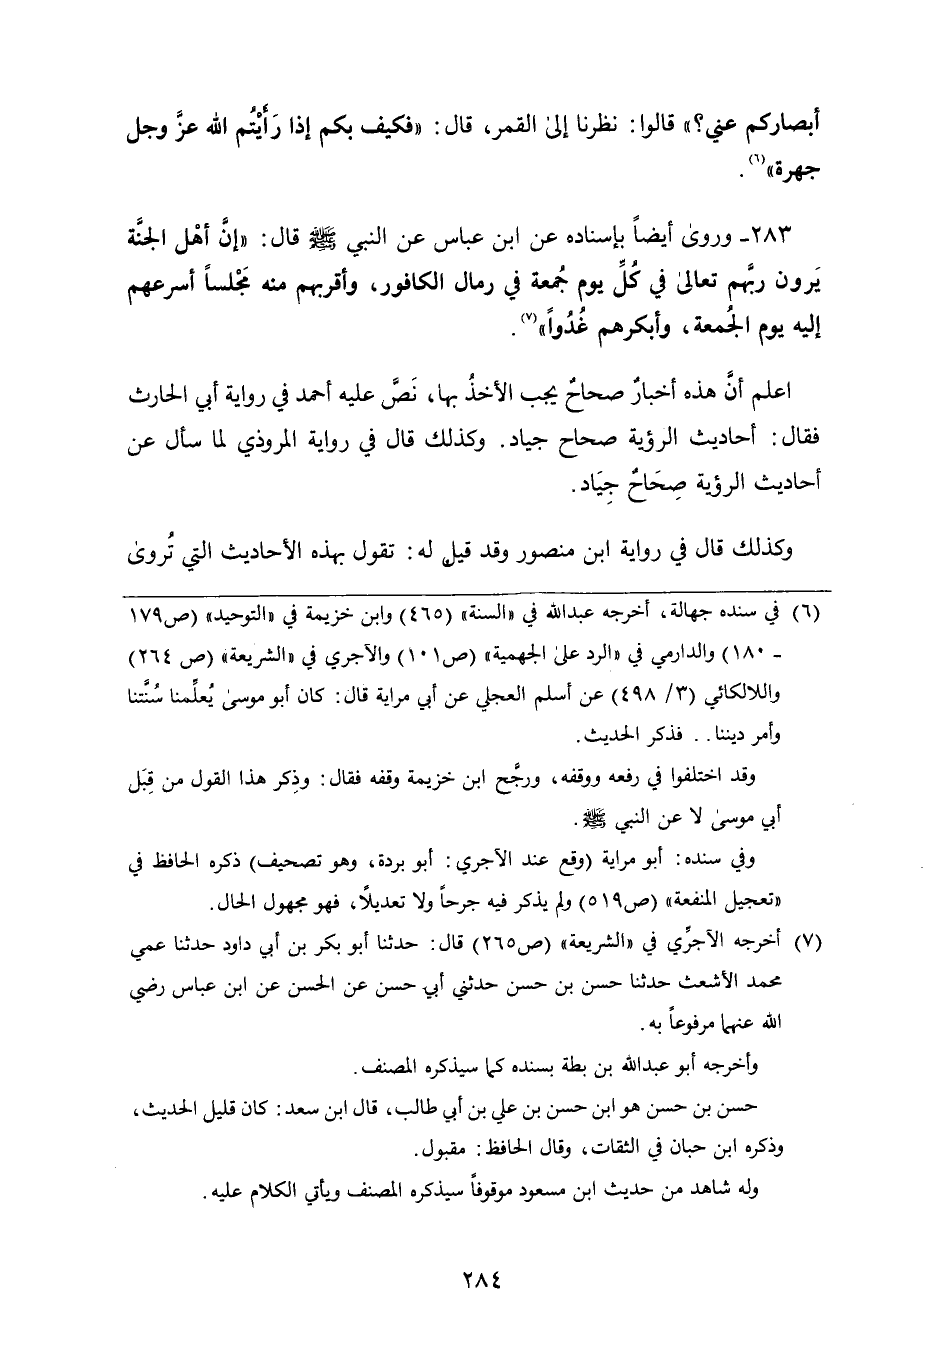 أبصاركم عني؟» قالوا: نظرنا إلىٰ القمر، قال: «فكيف بكم إذا رَأَيْتُم الله عزَّ وجل
جهرة»(٦).
٢٨٣ـ وروىٰ أيضاً بإسناده عن ابن عباس عن النبي ﷺ قال: «إنَّ أهْل الجنَّة
يَرون ربَّهم تعالىٰ في كُلِّ يوم جُمعة في رمال الكافور، وأقربهم منه مَجْلساً أسرعهم
إليه يوم الجُمعة، وأبكرهم غُدُواً»(٧).
اعلم أنَّ هذه أخبارٌ صحاحٌ يجب الأخذُ بها، نَصَّ عليه أحمد في رواية أبي الحارث
فقال: أحاديث الرؤية صحاح جياد. وكذلك قال في رواية المروذي لما سأل عن
أحاديث الرؤية صِحَاحٌ جِيَاد.
وكذلك قال في رواية ابن منصور وقد قيل له: تقول بهذه الأحاديث التي تُروىٰ
(٦) في سنده جهالة، أخرجه عبدالله في «السنة» (٤٦٥) وابن خزيمة في «التوحيد» (ص١٧٩
ـ ١٨٠) والدارمي في «الرد علىٰ الجهمية» (ص١٠١) والآجري في «الشريعة» (ص ٢٦٤)
واللالكائي (٣/ ٤٩٨) عن أسلم العجلي عن أبي مراية قال: كان أبو موسىٰ يُعلِّمنا سُنَّتنا
وأمر ديننا.. فذكر الحديث.
وقد اختلفوا في رفعه ووقفه، ورجَّح ابن خزيمة وقفه فقال: وذِكر هذا القول من قِبَل
أبي موسىٰ لا عن النبي ﷺ.
وفي سنده: أبو مراية (وقع عند الآجري: أبو بردة، وهو تصحيف) ذكره الحافظ في
«تعجيل المنفعة» (ص٥١٩) ولم يذكر فيه جرحاً ولا تعديلاً، فهو مجهول الحال.
(٧) أخرجه الآجرِّي في «الشريعة» (ص٢٦٥) قال: حدثنا أبو بكر بن أبي داود حدثنا عمي
محمد الأشعث حدثنا حسن بن حسن حدثني أبي حسن عن الحسن عن ابن عباس رضي
الله عنهما مرفوعاً به.
وأخرجه أبو عبدالله بن بطة بسنده كما سيذكره المصنف.
حسن بن حسن هو ابن حسن بن علي بن أبي طالب، قال ابن سعد: كان قليل الحديث،
وذكره ابن حبان في الثقات، وقال الحافظ: مقبول.
وله شاهد من حديث ابن مسعود موقوفاً سيذكره المصنف ويأتي الكلام عليه.
٢٨٤